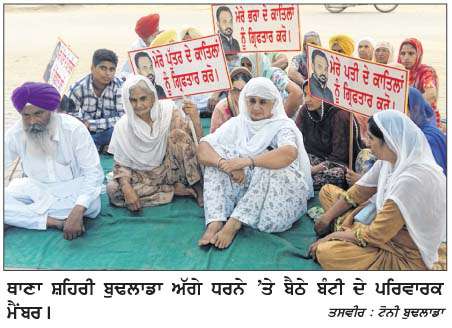 ਮੇਰੇ ਭਰਾ ਦੇ ਕਾਤਿਲਾਂ
ਨੂੰ ਗ੍ਰਿਫਤਾਰ ਕਰੋ।
ਮੇਰੇ ਪੁੱਤਰ ਦੇ ਕਾਤਿਲਾਂ
ਨੂੰ ਗ੍ਰਿਫਤਾਰ ਕਰੋ।
ਮੇਰੇ ਪਤੀ ਦੇ ਕਾਤਿਲਾਂ
ਨੂੰ ਗ੍ਰਿਫਤਾਰ ਕਰੋ।
ਥਾਣਾ ਸ਼ਹਿਰੀ ਬੁਢਲਾਡਾ ਅੱਗੇ ਧਰਨੇ ’ਤੇ ਬੈਠੇ ਬੰਟੀ ਦੇ ਪਰਿਵਾਰਕ
ਮੈਂਬਰ।
ਤਸਵੀਰ : ਟੋਨੀ ਬੁਢਲਾਡਾ